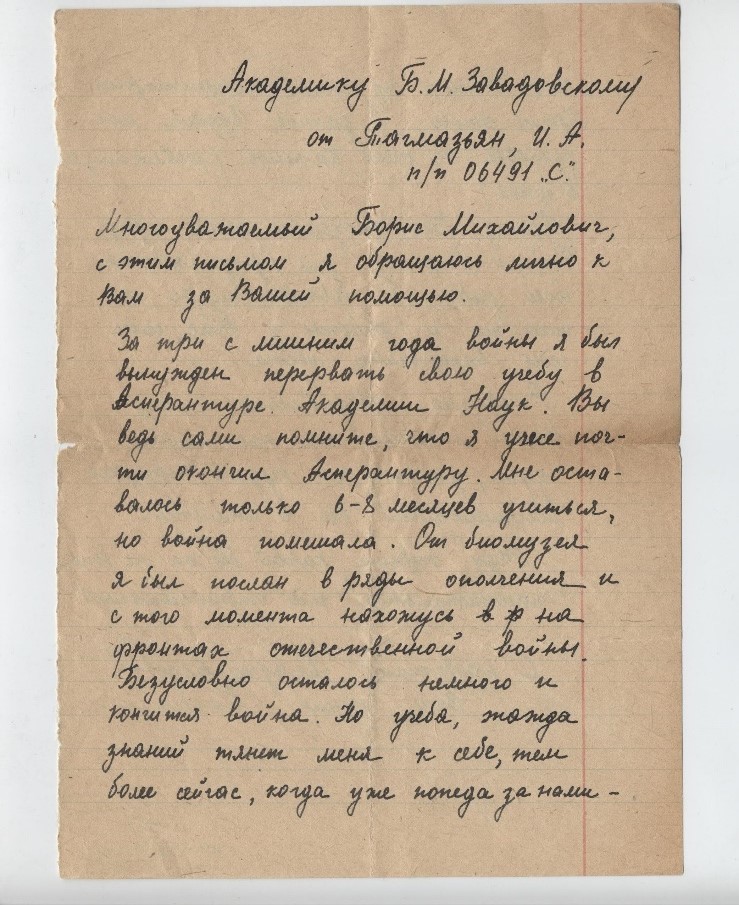 Академику Б.М. Завадовскому
от Тагмазьян, И. А.
п/п 06491 „С“.
Многоуважаемый Борис Михайлович,
с этим письмом я обращаюсь лично к
Вам за Вашей помощью.
За три с лишним года войны я был
вынужден перервать свою учебу в
Аспирантуре Академии Наук. Вы
ведь сами помните, что я уже поч-
ти окончил Аспирантуру. Мне оста-
валось только 6-8 месяцев учиться,
но война помешала. От биомузея
я был послан в ряды ополчения и
с того момента нахожусь в р на
фронтах отечественной войны.
Безусловно осталось немного и
кончится война. Но учеба, жажда
знаний тянет меня к себе, тем
более сейчас, когда уже попеда за нами -